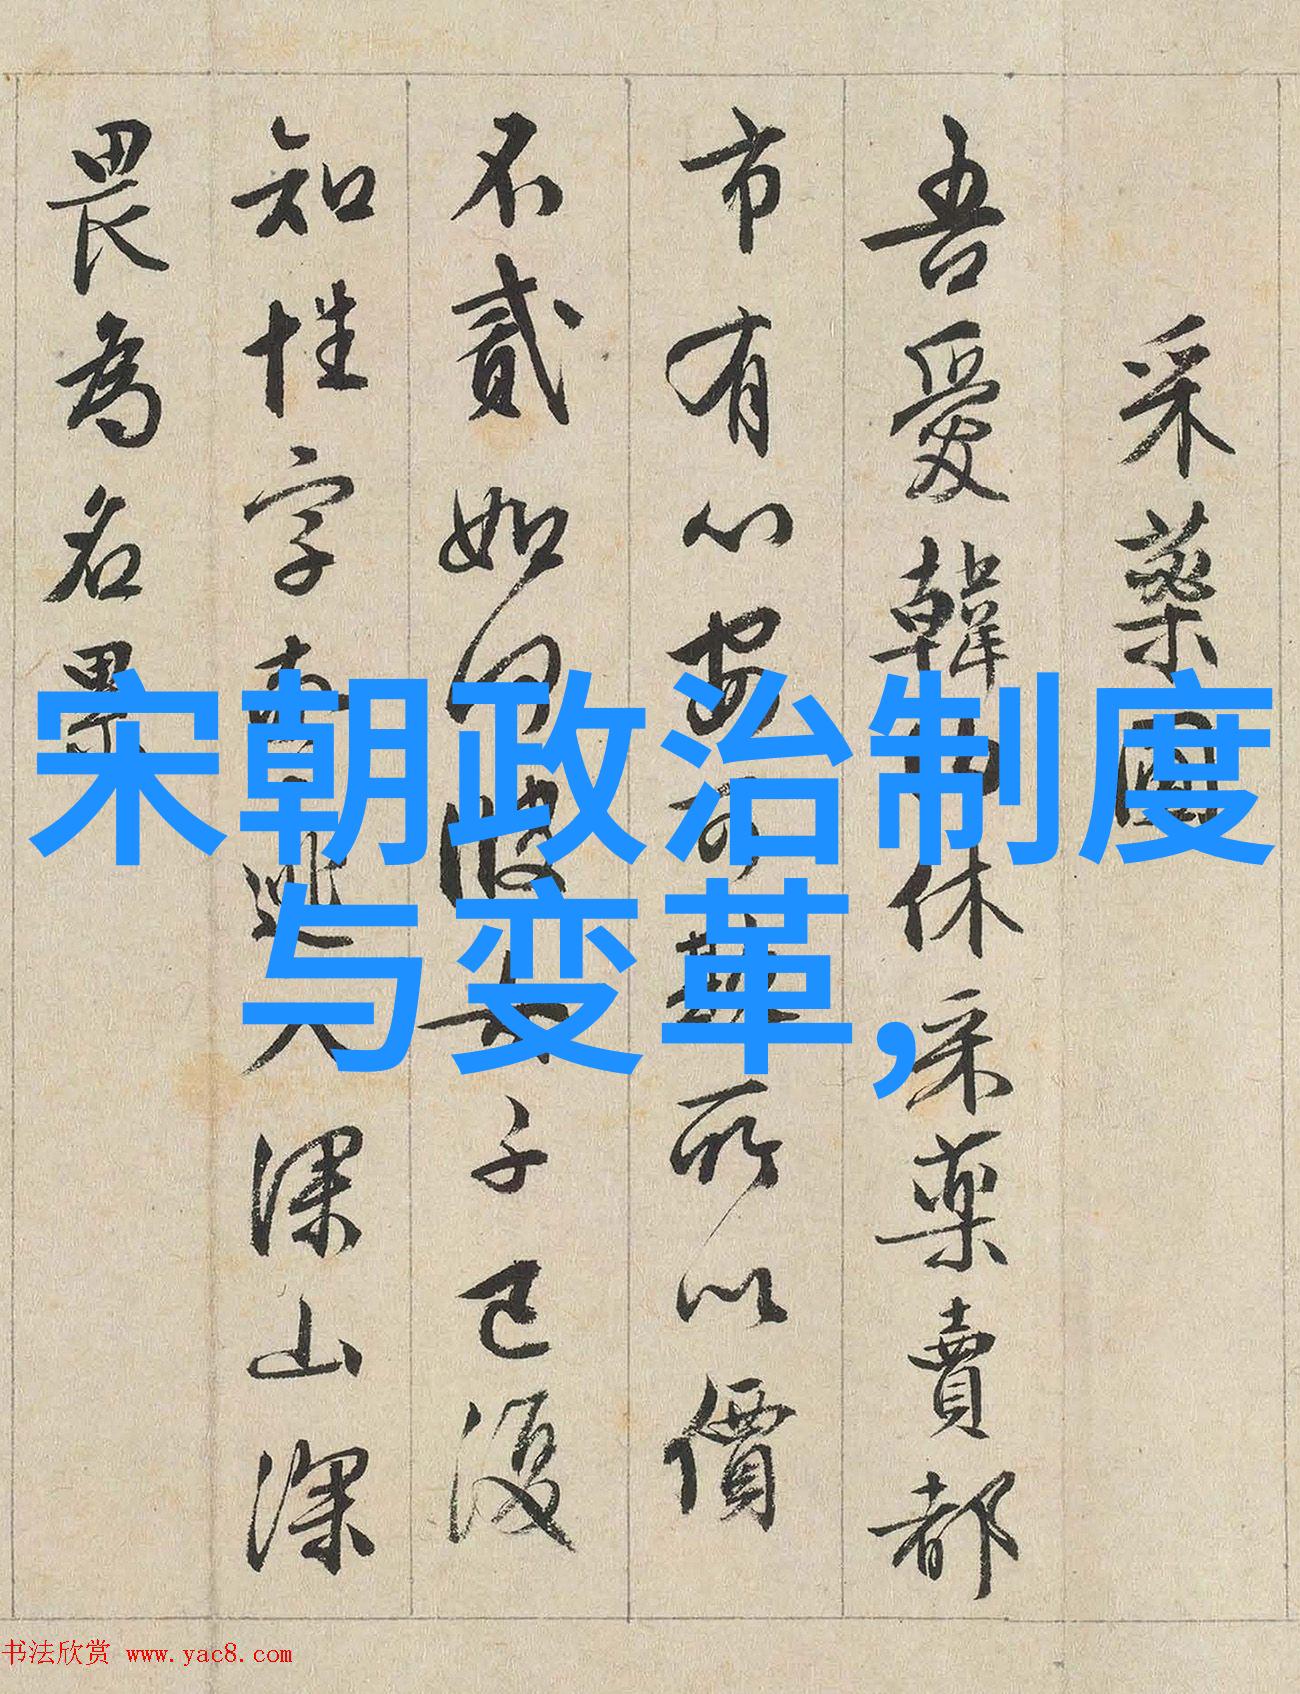 宋朝政治制度
与变革,
采薬圖
吾愛韓伯休采薬賣都
市有心安可欺所以價
不貳如何彼女子已復
知性字逃入深山深
畏為名累
书法欣赏 www.yac8.com